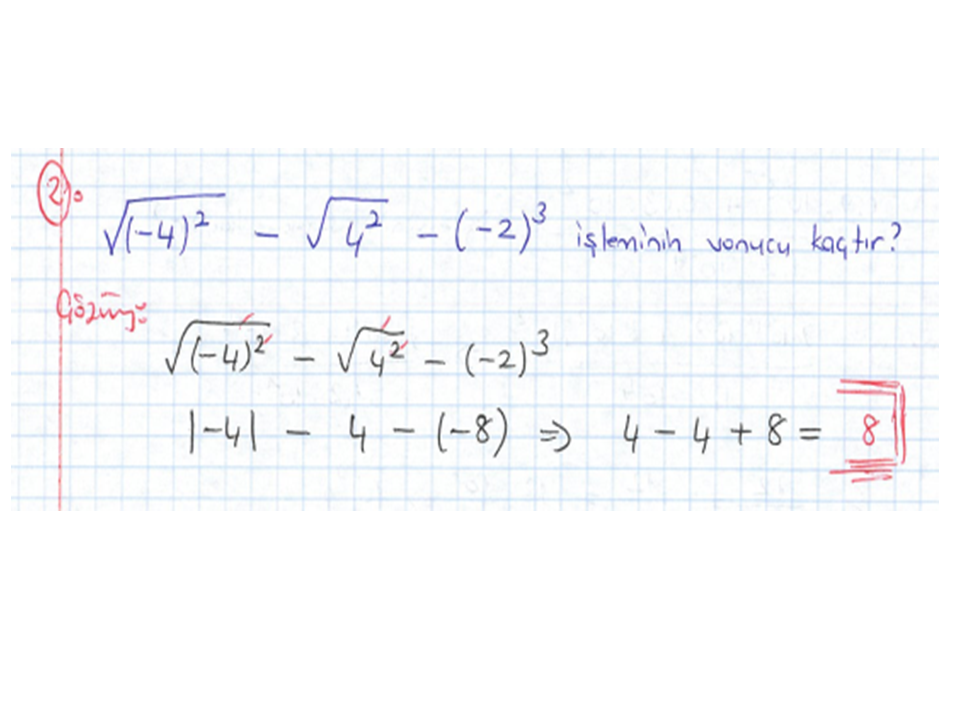 2.
√(-4)² - √4² - (-2)³ işleminin sonucu kaçtır?
Çözüm:
√(-4)² - √4² - (-2)³
|-4| - 4 - (-8) ⇒ 4 - 4 + 8 = 8